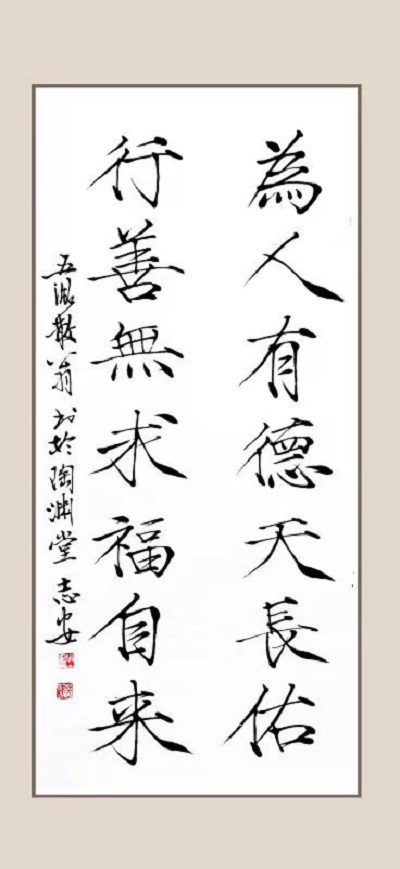 為人有德天長佑
行善無求福自来
五湖散翁书於陶渊堂 志安